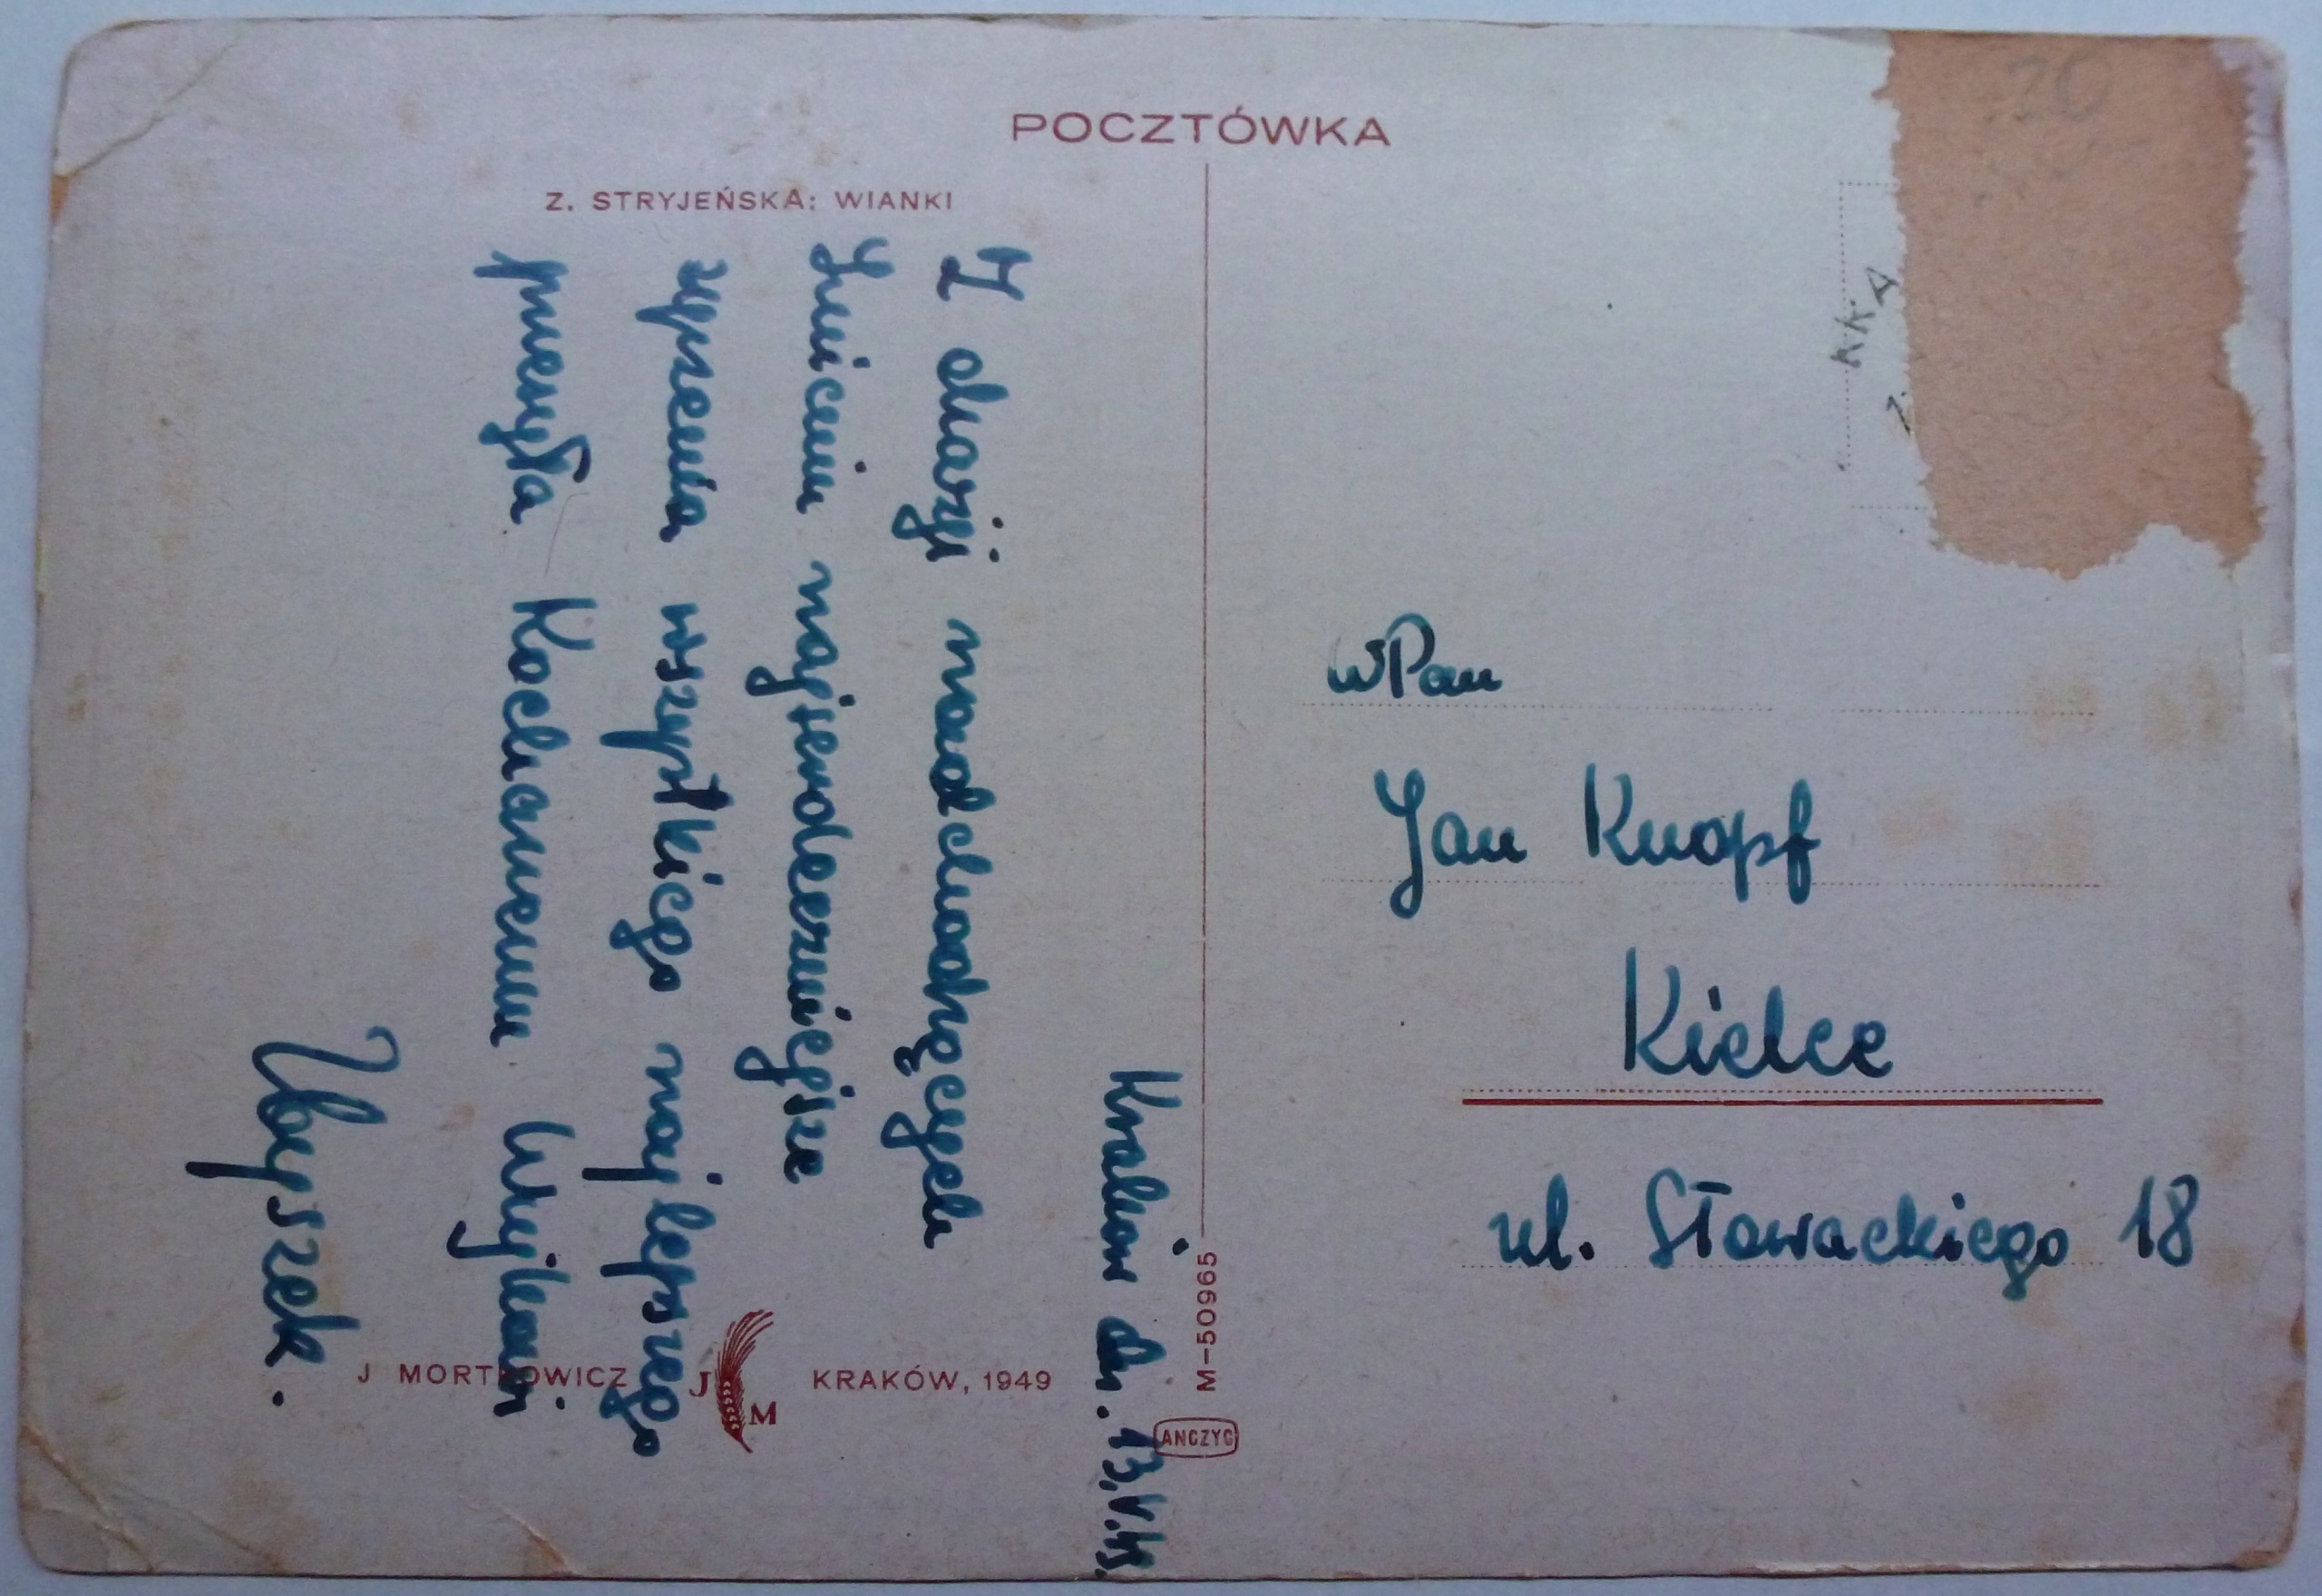 POCZTÓWKA
Z. STRYJEŃSKA: WIANKI
Kraków dn. 13.V.49.
Z okazji nadchodzących
Imienin najserdeczniejsze
życzenia wszystkiego najlepszego
przesyła Kochanemu Wujkowi
Zbyszek.
J MORTKOWICZ
J M
KRAKÓW, 1949
M-50965
ANCZYC
WPan
Jan Knopf
Kielce
ul. Słowackiego 18
20